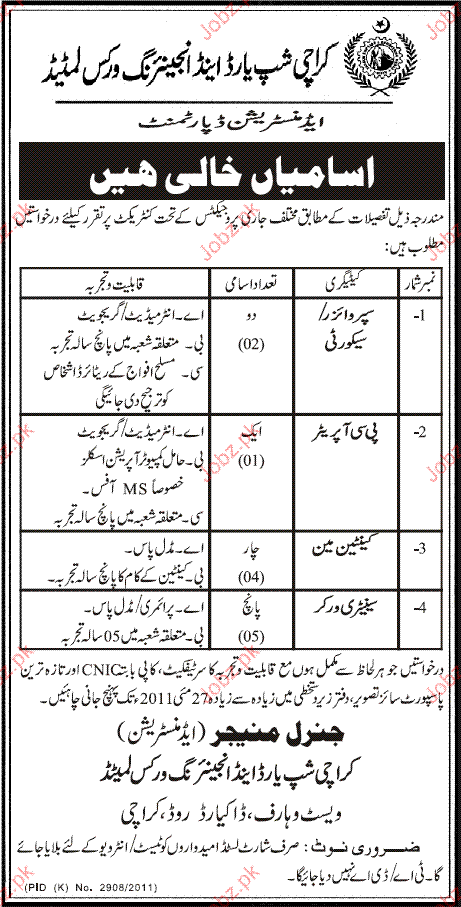 کراچی شپ یارڈ اینڈ انجینئرنگ ورکس لمٹیڈ
ایڈمنسٹریشن ڈپارٹمنٹ
اسامیاں خالی ھیں
مندرجہ ذیل تفصیلات کے مطابق مختلف جاری پروجیکٹس کے تحت کنٹریکٹ پر تقرر کیلئے درخواستیں
مطلوب ہیں:
نمبر شمار کیٹیگری تعداد اسامی قابلیت و تجربہ
1- سپروائزر/ دو اے۔ انٹرمیڈیٹ/گریجویٹ
سیکورٹی (02) بی۔ متعلقہ شعبہ میں پانچ سالہ تجربہ
سی۔ مسلح افواج کے ریٹائرڈ اشخاص
کو ترجیح دی جائیگی
2- پی سی آپریٹر ایک اے۔ انٹرمیڈیٹ/گریجویٹ
(01) بی۔ حامل کمپیوٹر آپریشن اسکلز
خصوصاً MS آفس۔
سی۔ متعلقہ شعبہ میں پانچ سالہ تجربہ
3- کینٹین مین چار اے۔ مڈل پاس۔
(04) بی۔ کینٹین کے کام کا پانچ سالہ تجربہ۔
4- سینیٹری ورکر پانچ اے۔ پرائمری/مڈل پاس۔
(05) بی۔ متعلقہ شعبہ میں 05 سالہ تجربہ
درخواستیں جو ہر لحاظ سے مکمل ہوں مع قابلیت و تجربہ کا سرٹیفکیٹ، کاپی بابت CNIC اور تازہ ترین
پاسپورٹ سائز تصویر، دفتر زیر دستخطی میں زیادہ سے زیادہ 27 مئی 2011ء تک پہنچ جانی چاہئیں۔
جنرل منیجر (ایڈمنسٹریشن)
کراچی شپ یارڈ اینڈ انجینئرنگ ورکس لمیٹڈ
ویسٹ وہارف، ڈاکیارڈ روڈ، کراچی
ضروری نوٹ: صرف شارٹ لسٹڈ امیدواروں کو ٹیسٹ/انٹرویو کے لئے بلایا جائے
گا۔ ٹی اے/ڈی اے نہیں دیا جائیگا۔
(PID (K) No. 2908/2011)
Jobz.pk